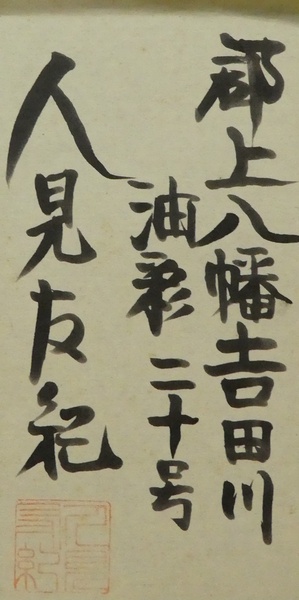 郡上八幡吉田川
油彩 二十号
人見友紀
人見友紀